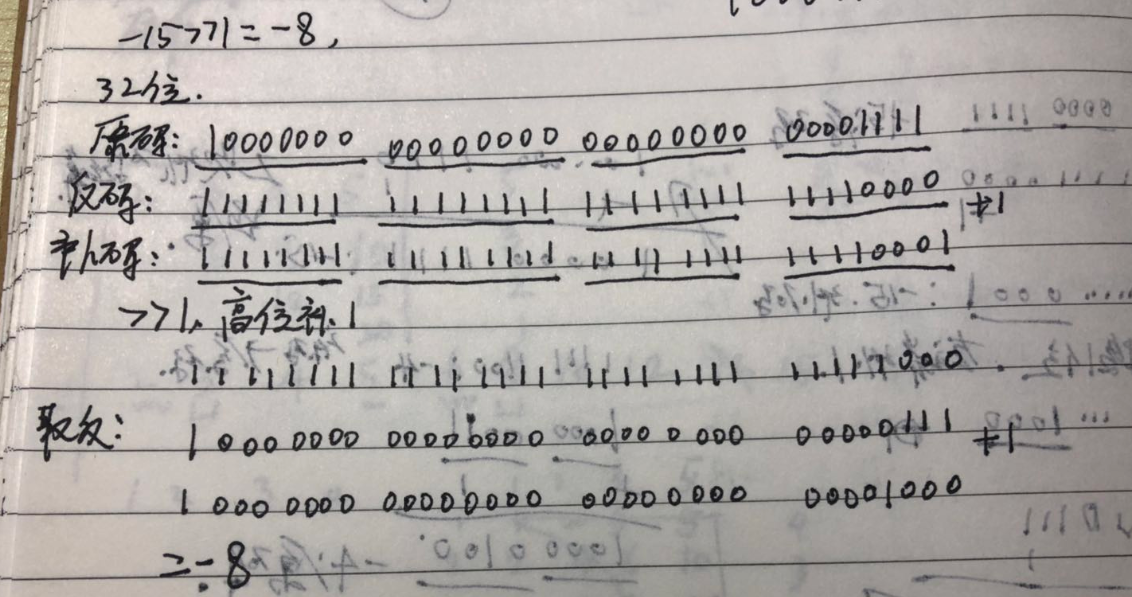 -15>>1=-8,
32位.
原码: 10000000 00000000 00000000 00001111
反码: 11111111 11111111 11111111 11110000 +1
补码: 11111111 11111111 11111111 11110001
>>1, 高位补1
11111111 11111111 11111111 11111000.
取反: 1000 0000 00000000 00000000 00000111 +1
1000 0000 00000000 00000000 00001000
=-8